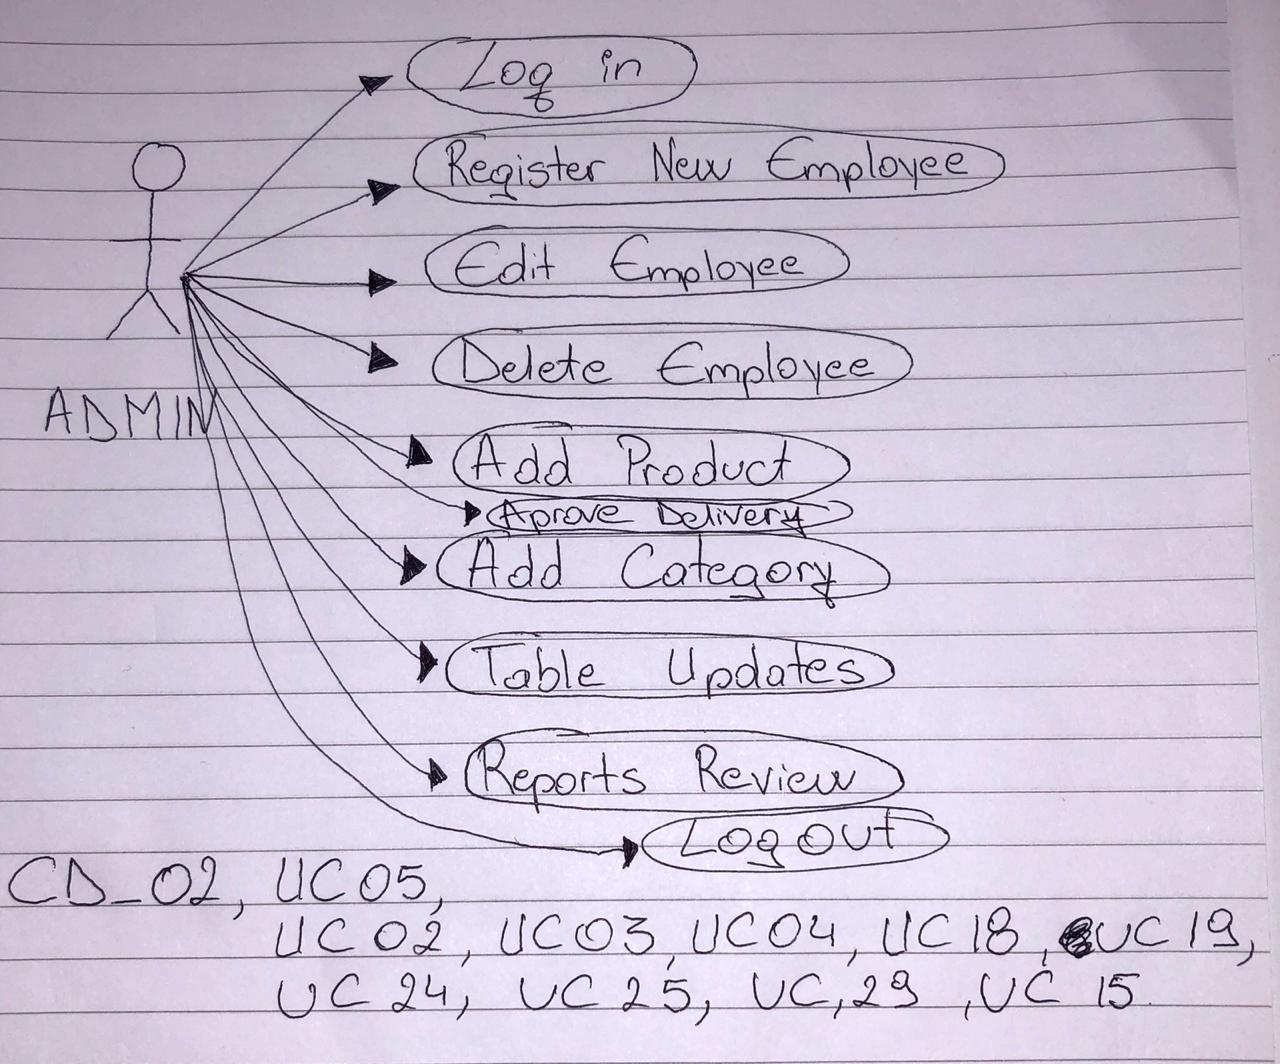 Log in
Register New Employee
Edit Employee
Delete Employee
ADMIN
Add Product
Aprove Delivery
Add Category
Table Updates
Reports Review
Log out
CD_02, UC05,
UC02, UC03, UC04, UC18, UC19,
UC24, UC25, UC,29 ,UC 15.